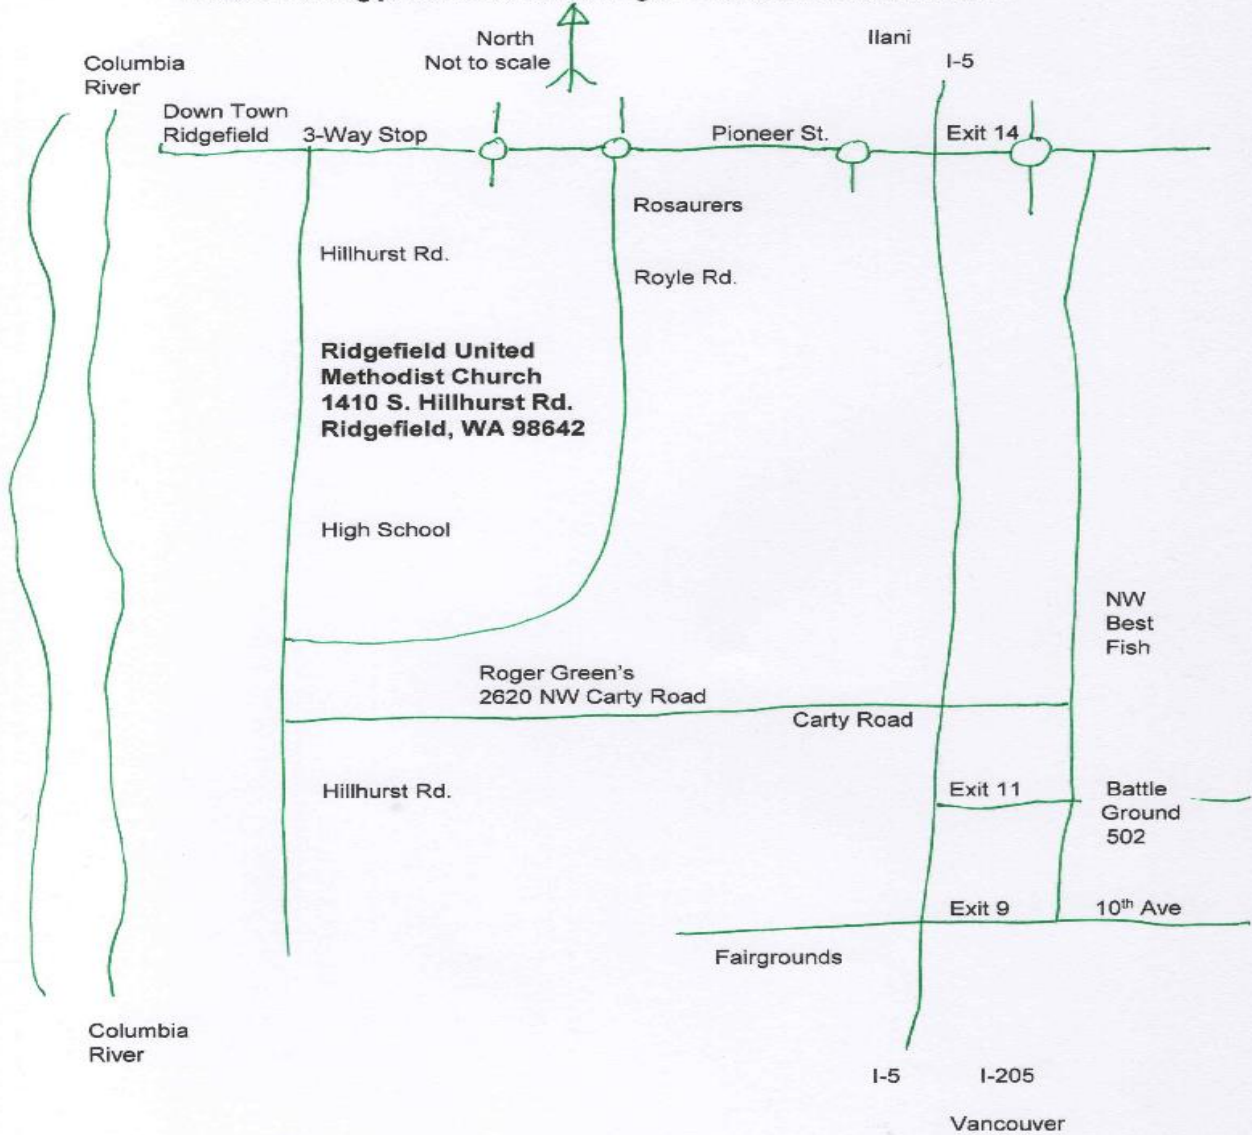 North
Not to scale
Ilani
I-5
Columbia
River
Down Town
Ridgefield
3-Way Stop
Pioneer St.
Exit 14
Rosaurers
Hillhurst Rd.
Royle Rd.
Ridgefield United
Methodist Church
1410 S. Hillhurst Rd.
Ridgefield, WA 98642
High School
NW
Best
Fish
Roger Green's
2620 NW Carty Road
Carty Road
Hillhurst Rd.
Exit 11
Battle
Ground
502
Exit 9
10th Ave
Fairgrounds
Columbia
River
I-5
I-205
Vancouver